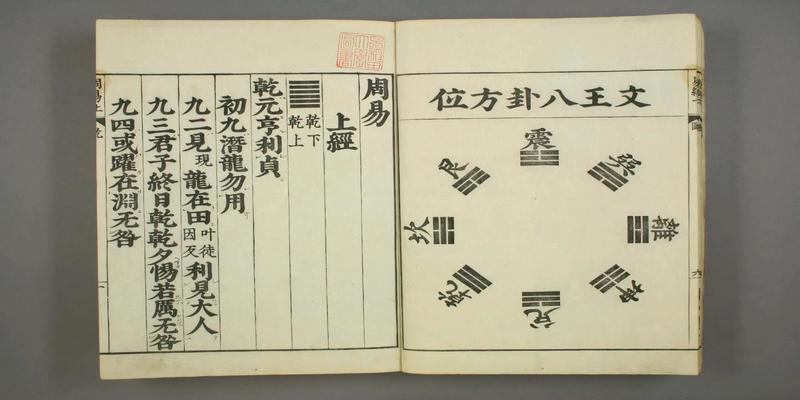 文王八卦方位
震
巽
離
坤
兌
乾
坎
艮
周易
上經
乾下
乾上
乾元亨利貞
初九潛龍勿用
九二見現龍在田叶徒因反利見大人
九三君子終日乾乾夕惕若厲无咎
九四或躍在淵无咎
周易上
乾